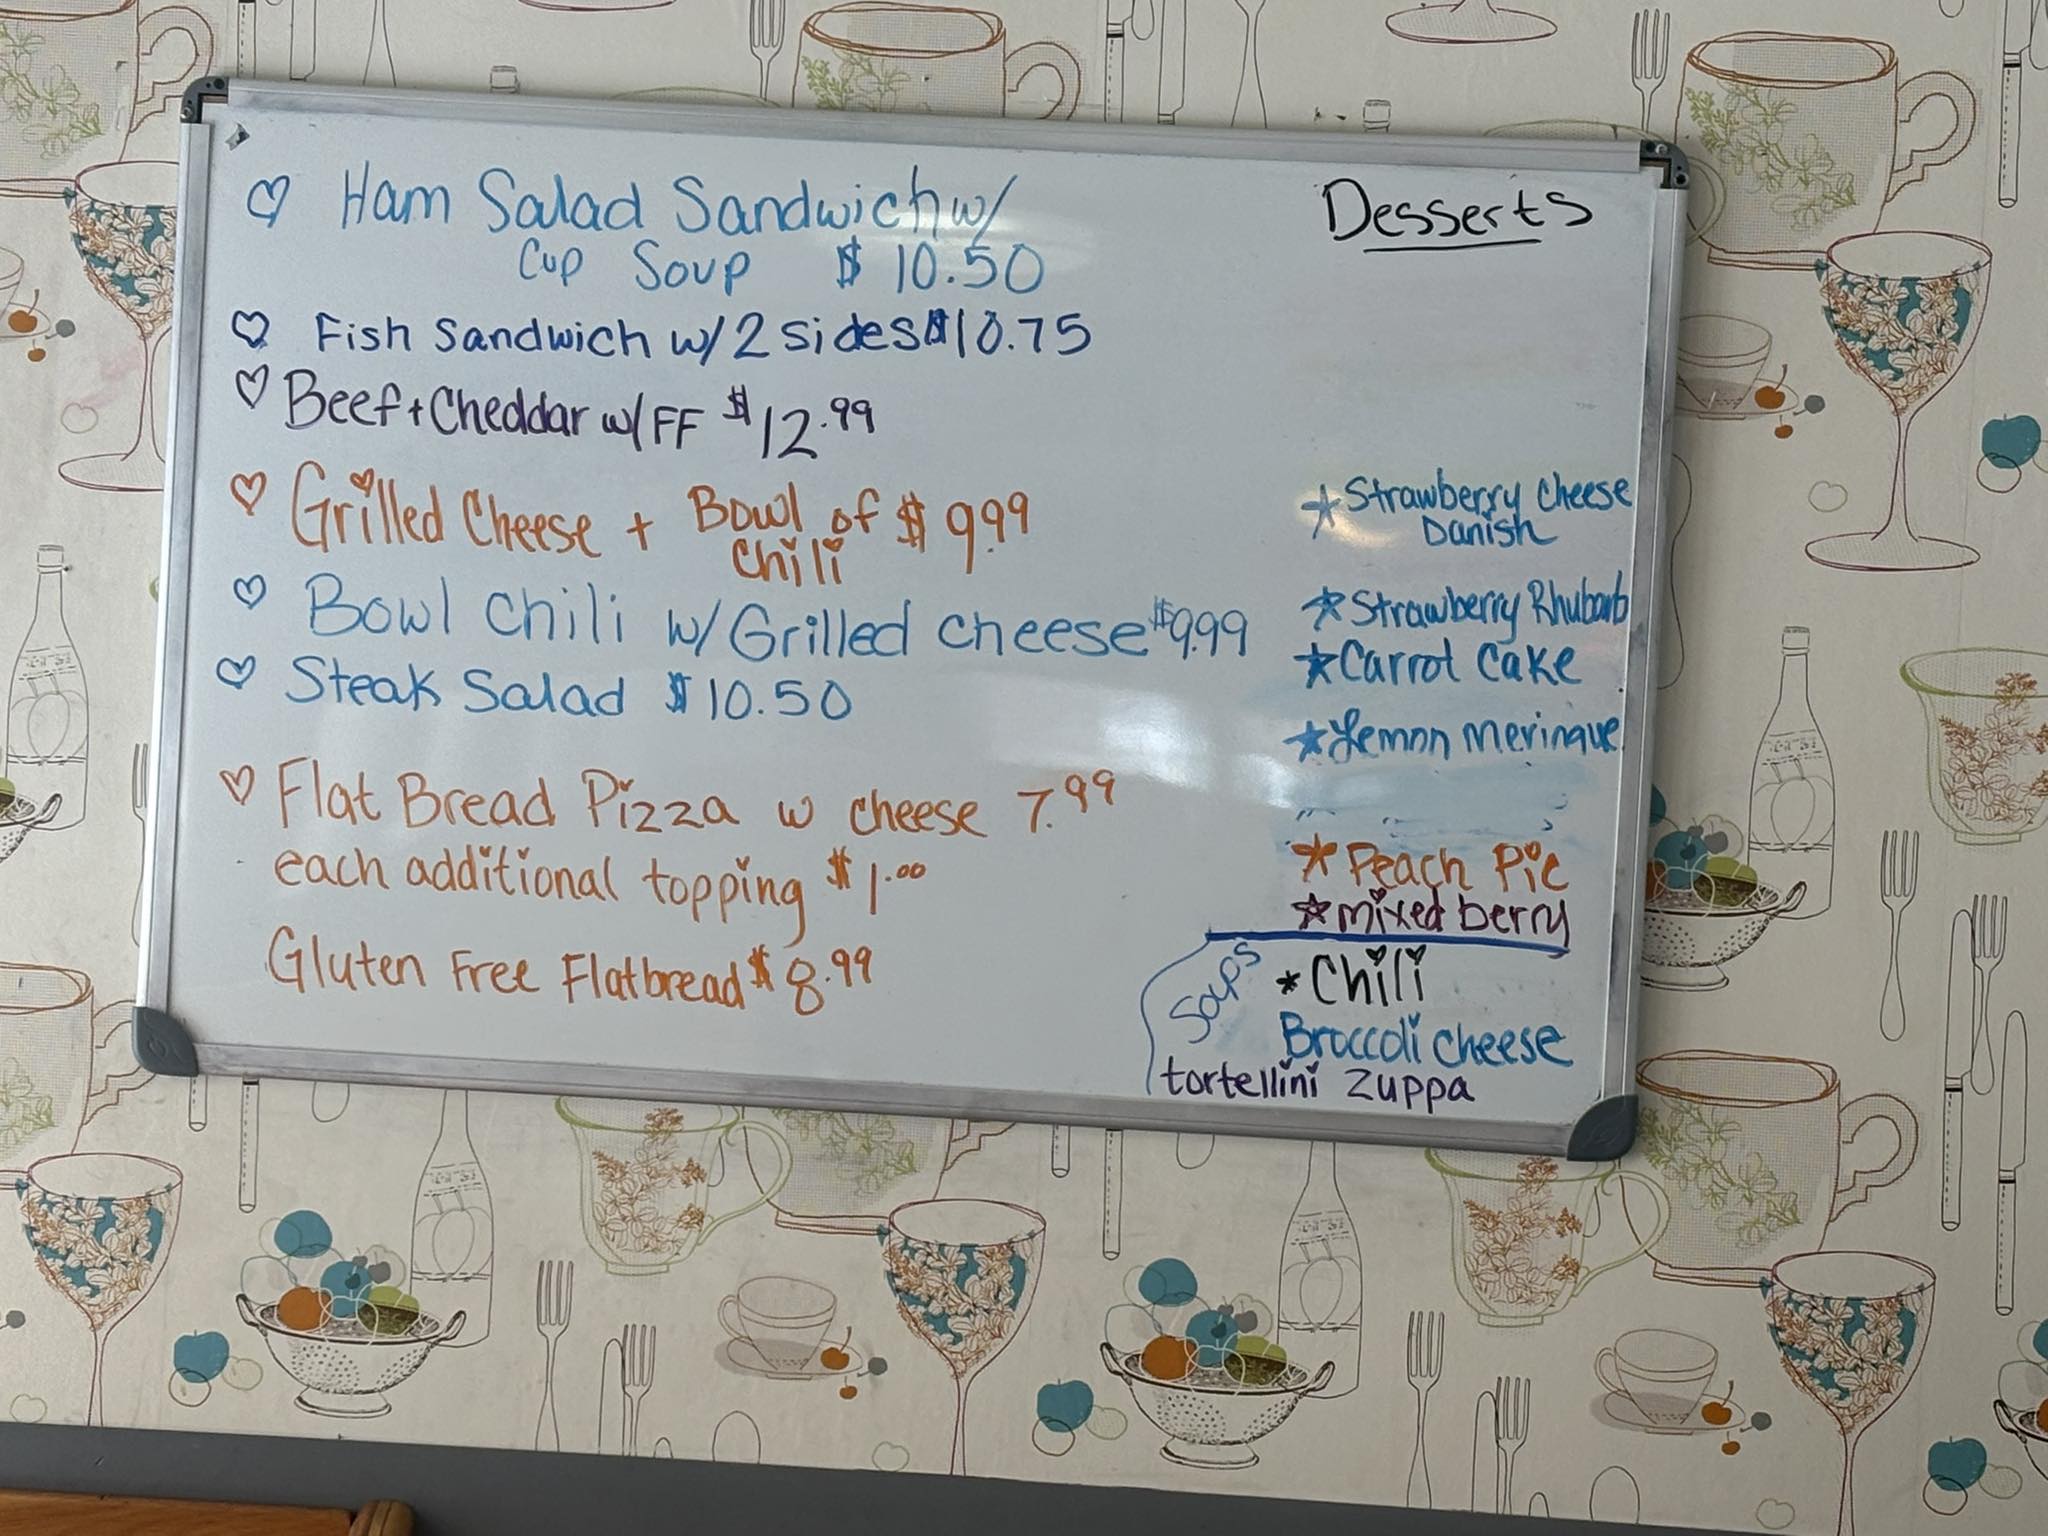 Ham Salad Sandwich w/
Cup Soup $10.50
Fish Sandwich w/ 2 sides $10.75
Beef + Cheddar w/ FF $12.99
Grilled Cheese + Bowl of Chili $9.99
Bowl Chili w/ Grilled cheese $9.99
Steak Salad $10.50
Flat Bread Pizza w cheese 7.99
each additional topping $1.00
Gluten Free Flatbread $8.99
Desserts
Strawberry Cheese
Danish
Strawberry Rhubarb
Carrot Cake
Lemon Meringue
Peach Pie
mixed berry
Soups
Chili
Broccoli cheese
tortellini Zuppa